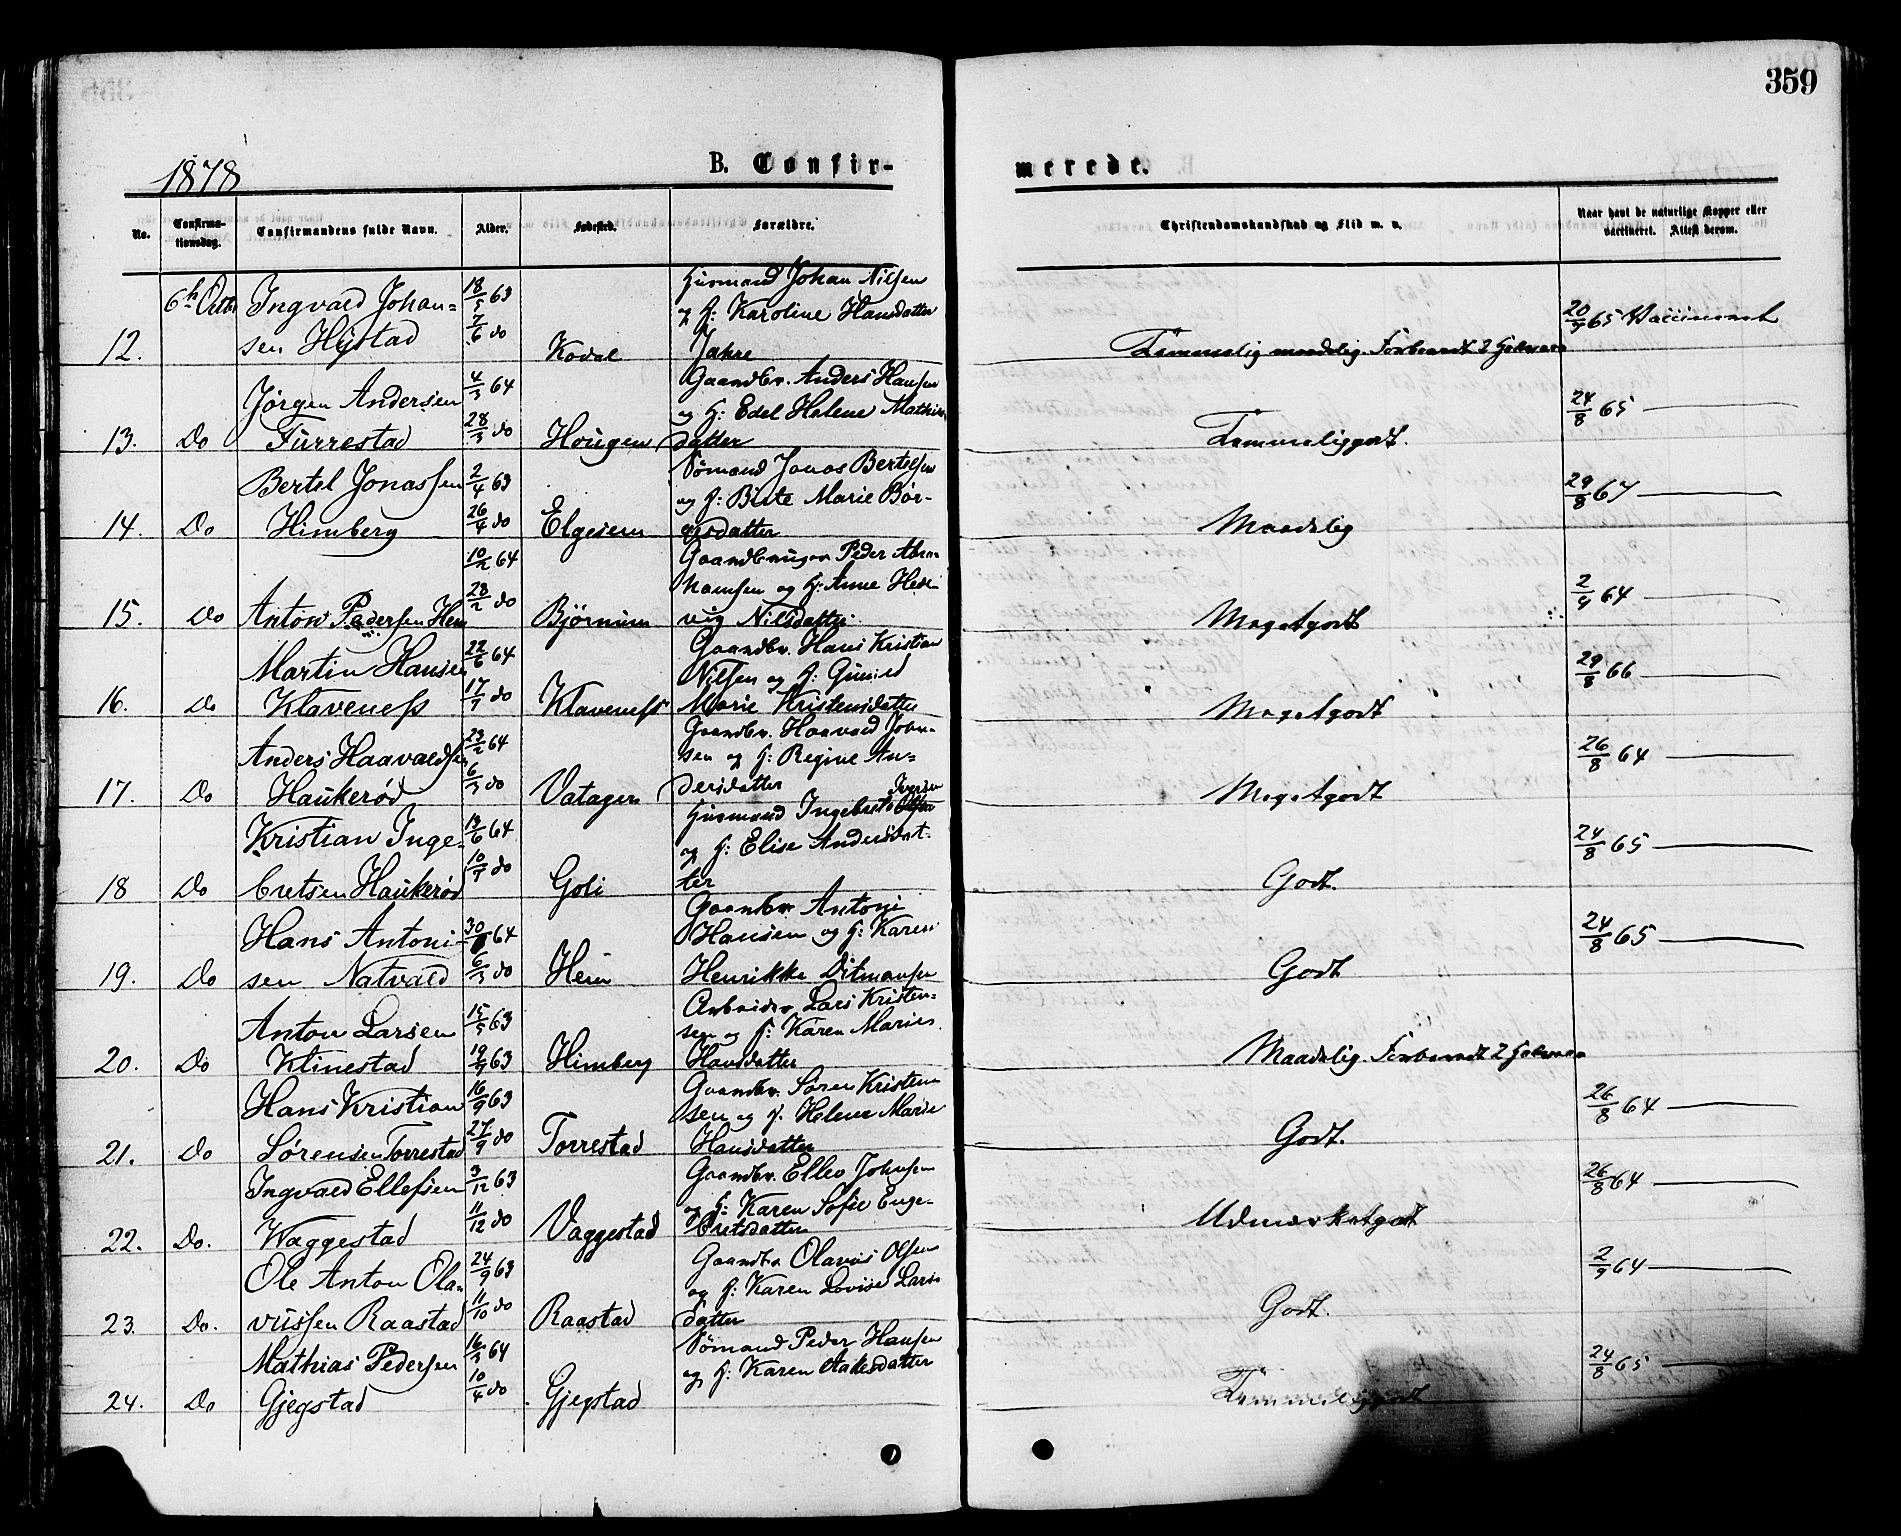 359
1878
B. Confir-
merede.
No.
Confirma-
tionsdag.
Confirmandens fulde Navn.
Alder.
Fødested.
Forældre.
Christendomskundskab og Flid m. v.
Naar havt de naturlige Kopper eller
vaccineret. Attest derom.
12. 6te Octbr Ingvald Johan-
sen Hystad
18/5 63
7/6 do
Kodal
Husmand Johan Nilsen
og H: Karoline Hansdatter
Jahre
Temmelig maadelig. Forberedt 2 Halvaar
20/9 65 Vaccineret
13. Do Jørgen Andersen
Furrestad
4/3 64
28/3 do
Hougen
Gaardbr. Anders Hansen
og H: Edel Helene Mathis
datter
Temmeliggodt.
24/8 65
14. Do Bertel Jonassen
Himberg
2/4 63
26/4 do
Elgesem
Sømand Jonas Bertelsen
og H: Birte Marie Bør-
gesdatter
Maadelig
29/8 67
15. Do Anton Pedersen Hem
10/2 64
28/2 do
Bjørnum
Gaardbruger Peder Abra-
hamsen og H: Anne Hed-
vig Nilsdatter
Megetgodt
2/9 64
16. Do Martin Hansen
Klaveness
22/6 64
17/7 do
Klaveness
Gaardbr. Hans Kristian
Nilsen og H: Gunild
Marie Kristensdatter
Megetgodt
29/8 66
17. Do Anders Haavaldsen
Haukerød
23/2 64
6/3 do
Vatagen
Gaardbr. Haavald Joan-
sen og H: Regine An-
dersdatter
Megetgodt
26/8 64
18 Do Kristian Inge-
bretsen Haukerød
13/6 64
10/7 do
Goli
Iversen
Husmand Ingebret Olsen
og H: Elise Andersdat-
ter
Godt.
24/8 65
19. Do Hans Antoni-
sen Natvald
30/ 64
6/3 do
Hem
Gaardbr. Antoni
Hansen og H: Karen
Henrikke Ditmansen
Godt
24/8 65
20. Do Anton Larsen
Klinestad
15/5 63
19/7 63
Himberg
Arbeider Lars Kristen-
sen og H: Karen Marie
Hansdatter
Maadelig. Forberedt 2 Halvaar
21. Do Hans Kristian
Sørensen Torrestad
16/9 63
27/9 do
Torrestad
Gaardbr. Søren Kristen
sen og H. Helene Marie
Hansdatter
Godt.
26/8 64
22. Do. Ingvald Ellefsen
Waggestad
3/12 63
11/12 do
Vaggestad
Gaardbr. Ellev Johnsen
og H: Karen Sofie Enge-
bretsdatter
Udmærketgodt
26/8 64
23. Do. Ole Anton Ola-
vussen Raastad
24/9 63
11/10 do
Raastad
Gaardbr Olavus Olsen
og H: Karen Lovise Lars
datter
Godt.
2/9 64
24. Do Mathias Pedersen
Gjegstad
16/3 64
10/4 do
Gjegstad
Sømand Peder Hansen
og H: Karen Aakesdatter
Temmeliggodt
24/8 65